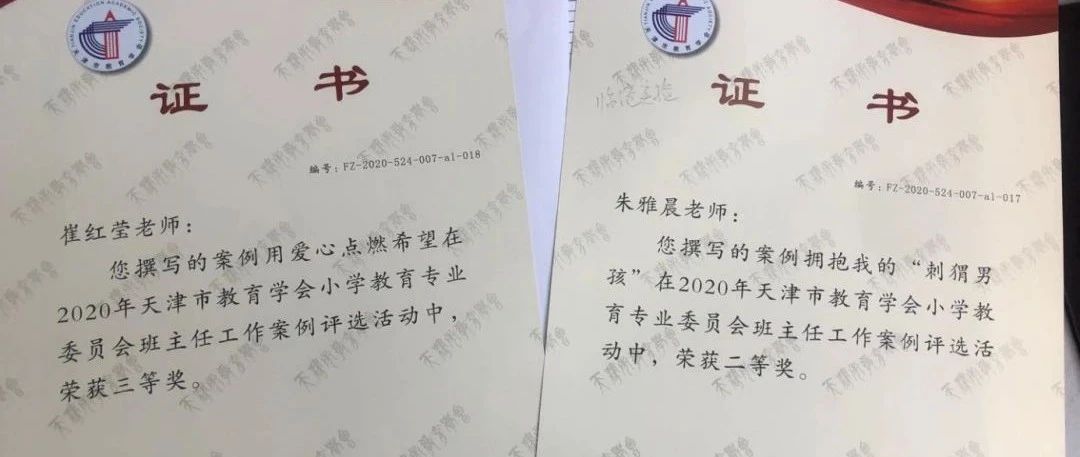 TIANJIN EDUCATION ACADEMIC SOCIETY
天津市教育学会
证 书
编号：FZ-2020-524-007-al-018
崔红莹老师：
您撰写的案例用爱心点燃希望在
2020年天津市教育学会小学教育专业
委员会班主任工作案例评选活动中，
荣获三等奖。
天津市教育学会
证 书
编号：FZ-2020-524-007-al-017
朱雅晨老师：
您撰写的案例拥抱我的“刺猬男
孩”在2020年天津市教育学会小学教
育专业委员会班主任工作案例评选活
动中，荣获二等奖。